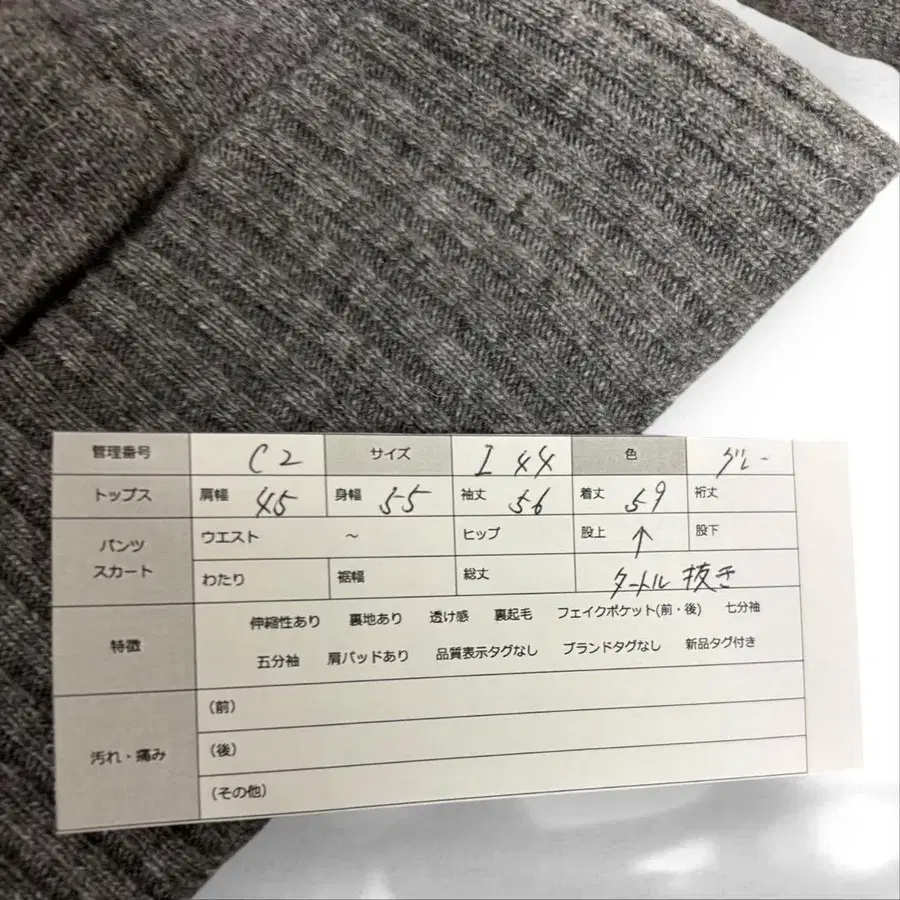 管理番号 C2 サイズ I 44 色 グレー
トップス 肩幅 45 身幅 55 袖丈 56 着丈 59 裄丈
パンツ ウエスト ～ ヒップ 股上 ↑ 股下
スカート わたり 裾幅 総丈 タートル抜き
特徴 伸縮性あり 裏地あり 透け感 裏起毛 フェイクポケット(前・後) 七分袖
五分袖 肩パッドあり 品質表示タグなし ブランドタグなし 新品タグ付き
汚れ・痛み (前)
(後)
(その他)